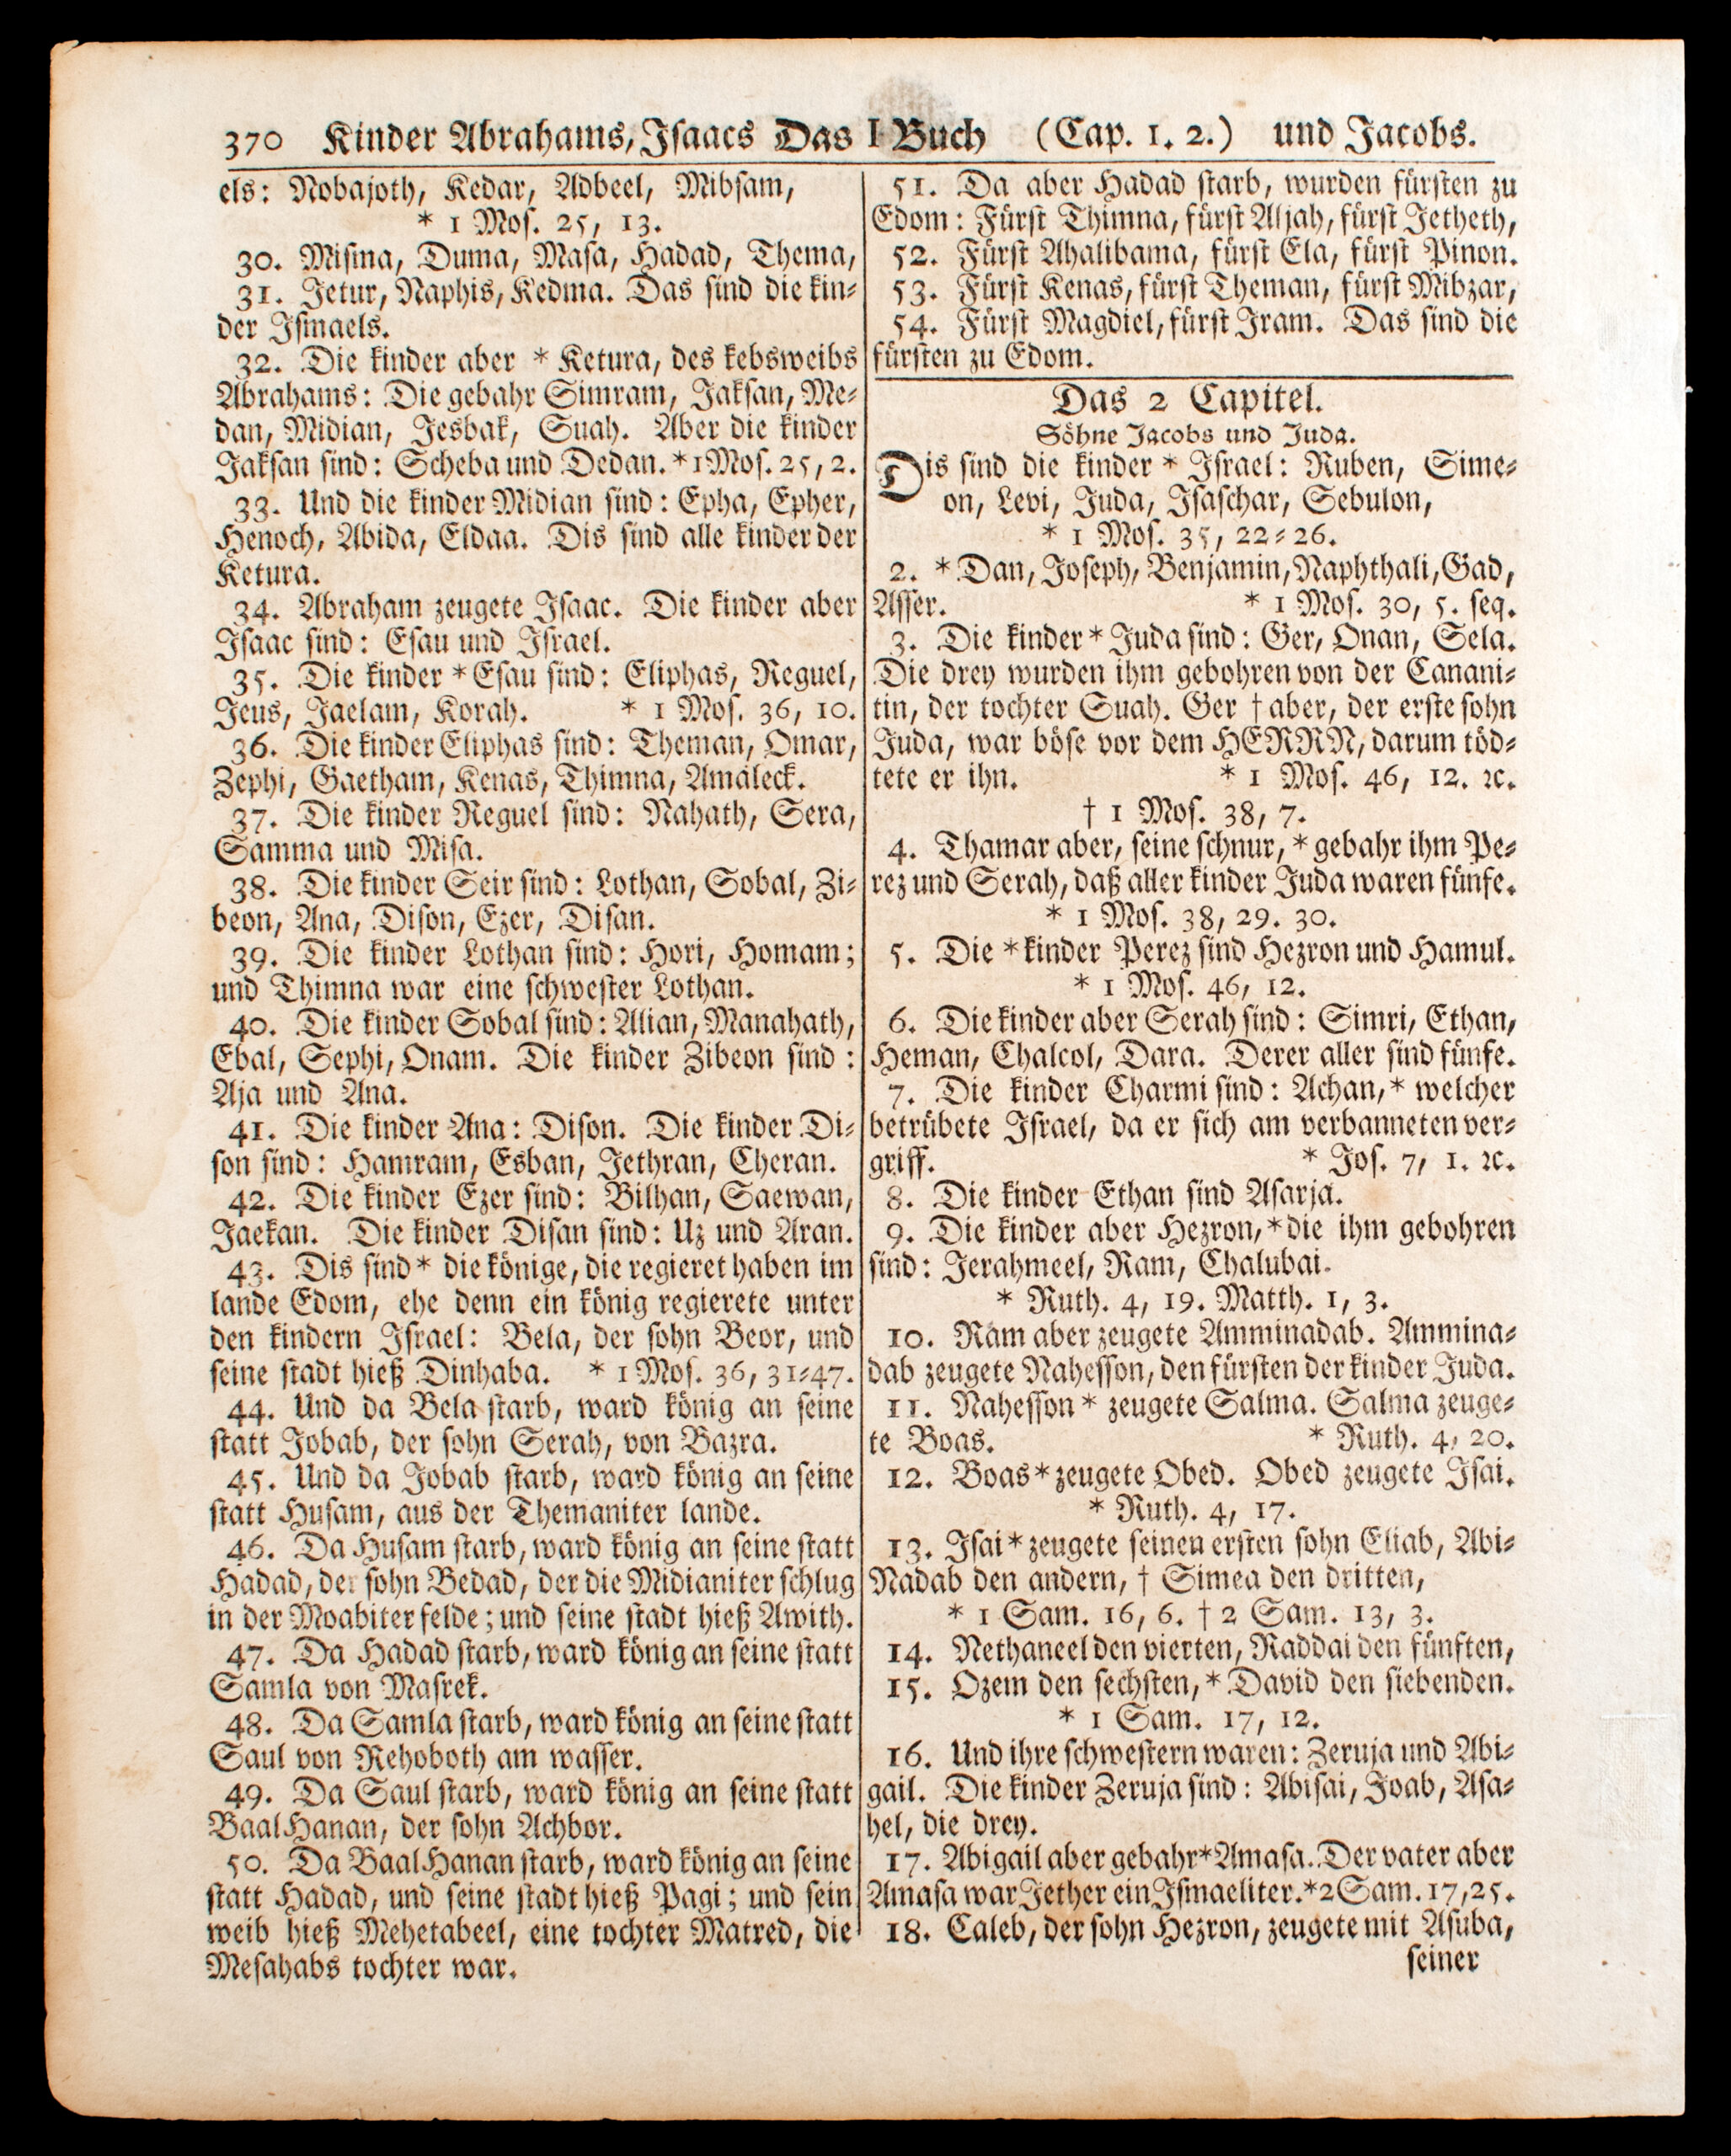 370 Kinder Abrahams, Isaacs Das I Buch (Cap. 1. 2.) und Jacobs.
els: Nobajoth, Kedar, Adbeel, Mibsam,
* 1 Mos. 25, 13.
30. Misma, Duma, Masa, Hadad, Thema,
31. Jetur, Naphis, Kedma. Das sind die kin-
der Ismaels.
32. Die kinder aber * Ketura, des kebsweibs
Abrahams: Die gebahr Simram, Jaksan, Me-
dan, Midian, Jesbak, Suah. Aber die kinder
Jaksan sind: Scheba und Dedan. * 1 Mos. 25, 2.
33. Und die kinder Midian sind: Epha, Epher,
Henoch, Abida, Eldaa. Dis sind alle kinder der
Ketura.
34. Abraham zeugete Isaac. Die kinder aber
Isaac sind: Esau und Israel.
35. Die kinder * Esau sind: Eliphas, Reguel,
Jeus, Jaelam, Korah. * 1 Mos. 36, 10.
36. Die kinder Eliphas sind: Theman, Omar,
Zephi, Gaetham, Kenas, Thimna, Amaleck.
37. Die kinder Reguel sind: Nahath, Sera,
Samma und Misa.
38. Die kinder Seir sind: Lothan, Sobal, Zi-
beon, Ana, Dison, Ezer, Disan.
39. Die kinder Lothan sind: Hori, Homam;
und Thimna war eine schwester Lothan.
40. Die kinder Sobal sind: Alian, Manahath,
Ebal, Sephi, Onam. Die kinder Zibeon sind:
Aja und Ana.
41. Die kinder Ana: Dison. Die kinder Di-
son sind: Hamram, Esban, Jethran, Cheran.
42. Die kinder Ezer sind: Bilhan, Saewan,
Jaekan. Die kinder Disan sind: Uz und Aran.
43. Dis sind * die könige, die regieret haben im
lande Edom, ehe denn ein könig regierete unter
den kindern Israel: Bela, der sohn Beor, und
seine stadt hieß Dinhaba. * 1 Mos. 36, 31-47.
44. Und da Bela starb, ward könig an seine
statt Jobab, der sohn Serah, von Bazra.
45. Und da Jobab starb, ward könig an seine
statt Husam, aus der Themaniter lande.
46. Da Husam starb, ward könig an seine statt
Hadad, der sohn Bedad, der die Midianiter schlug
in der Moabiter felde; und seine stadt hieß Awith.
47. Da Hadad starb, ward könig an seine statt
Samla von Masrek.
48. Da Samla starb, ward könig an seine statt
Saul von Rehoboth am wasser.
49. Da Saul starb, ward könig an seine statt
BaalHanan, der sohn Achbor.
50. Da BaalHanan starb, ward könig an seine
statt Hadad, und seine stadt hieß Pagi; und sein
weib hieß Mehetabeel, eine tochter Matred, die
Mesahabs tochter war.
51. Da aber Hadad starb, wurden fürsten zu
Edom: Fürst Thimna, fürst Aljah, fürst Jetheth,
52. Fürst Ahalibama, fürst Ela, fürst Pinon.
53. Fürst Kenas, fürst Theman, fürst Mibzar,
54. Fürst Magdiel, fürst Iram. Das sind die
fürsten zu Edom.
Das 2 Capitel.
Söhne Jacobs und Juda.
Dis sind die kinder * Israel: Ruben, Sime-
on, Levi, Juda, Isaschar, Sebulon,
* 1 Mos. 35, 22-26.
2. * Dan, Joseph, Benjamin, Naphthali, Gad,
Asser. * 1 Mos. 30, 5. seq.
3. Die kinder * Juda sind: Ger, Onan, Sela.
Die drey wurden ihm gebohren von der Canani-
tin, der tochter Suah. Ger † aber, der erste sohn
Juda, war böse vor dem HERRN, darum töd-
tete er ihn. * 1 Mos. 46, 12. ꝛc.
† 1 Mos. 38, 7.
4. Thamar aber, seine schnur, * gebahr ihm Pe-
rez und Serah, daß aller kinder Juda waren fünfe.
* 1 Mos. 38, 29. 30.
5. Die * kinder Perez sind Hezron und Hamul.
* 1 Mos. 46, 12.
6. Die kinder aber Serah sind: Simri, Ethan,
Heman, Chalcol, Dara. Derer aller sind fünfe.
7. Die kinder Charmi sind: Achan, * welcher
betrübete Israel, da er sich am verbanneten ver-
griff. * Jos. 7, 1. ꝛc.
8. Die kinder Ethan sind Asarja.
9. Die kinder aber Hezron, * die ihm gebohren
sind: Jerahmeel, Ram, Chalubai.
* Ruth. 4, 19. Matth. 1, 3.
10. Ram aber zeugete Amminadab. Ammina-
dab zeugete Nahesson, den fürsten der kinder Juda.
11. Nahesson * zeugete Salma. Salma zeuge-
te Boas. * Ruth. 4, 20.
12. Boas * zeugete Obed. Obed zeugete Isai.
* Ruth. 4, 17.
13. Isai * zeugete seinen ersten sohn Eliab, Abi-
Nadab den andern, † Simea den dritten,
* 1 Sam. 16, 6. † 2 Sam. 13, 3.
14. Nethaneel den vierten, Raddai den fünften,
15. Ozem den sechsten, * David den siebenden.
* 1 Sam. 17, 12.
16. Und ihre schwestern waren: Zeruja und Abi-
gail. Die kinder Zeruja sind: Abisai, Joab, Asa-
hel, die drey.
17. Abigail aber gebahr * Amasa. Der vater aber
Amasa war Jether ein Ismaeliter. * 2 Sam. 17, 25.
18. Caleb, der sohn Hezron, zeugete mit Asuba,
seiner